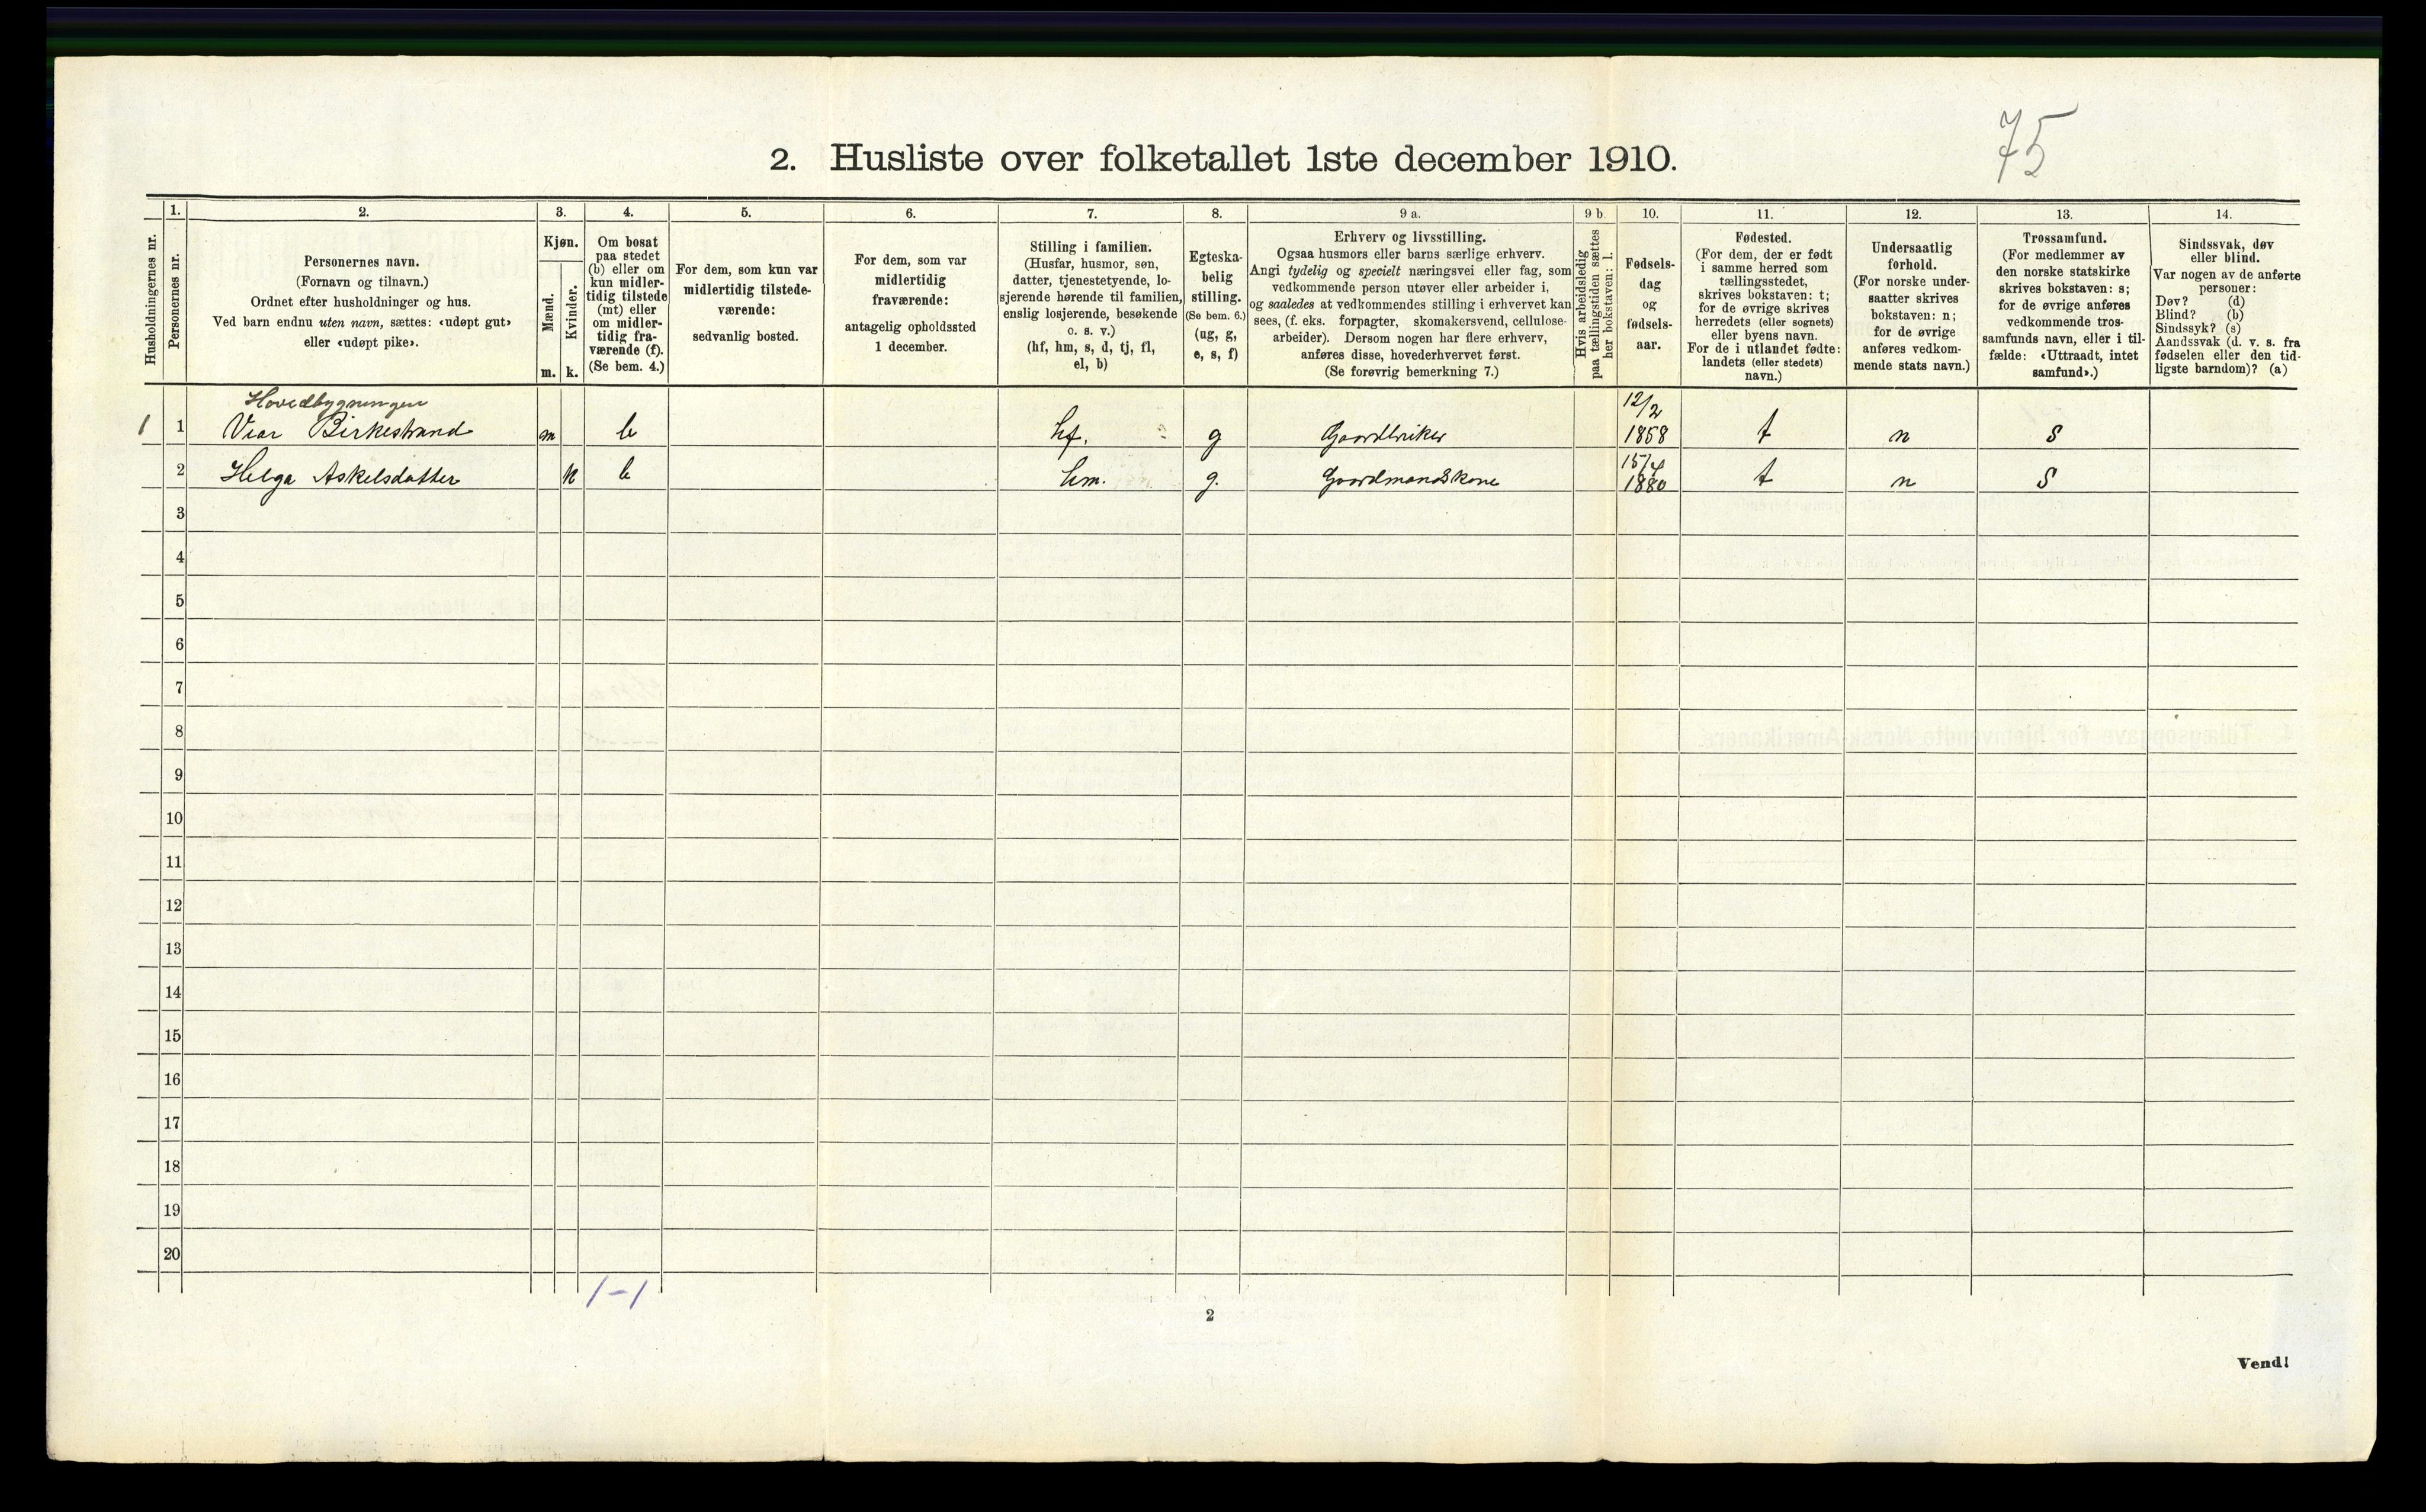 75
2. Husliste over folketallet 1ste december 1910.
Husholdningernes nr.
1.
Personernes nr.
2.
Personernes navn.
(Fornavn og tilnavn.)
Ordnet efter husholdninger og hus.
Ved barn endnu uten navn, sættes: «udøpt gut»
eller «udøpt pike».
3.
Kjøn.
Mænd.
m.
Kvinder.
k.
4.
Om bosat
paa stedet
(b) eller om
kun midler-
tidig tilstede
(mt) eller
om midler-
tidig fra-
værende (f).
(Se bem. 4.)
5.
For dem, som kun var
midlertidig tilstede-
værende:
sedvanlig bosted.
6.
For dem, som var
midlertidig
fraværende:
antagelig opholdssted
1 december.
7.
Stilling i familien.
(Husfar, husmor, søn,
datter, tjenestetyende, lo-
sjerende hørende til familien,
enslig losjerende, besøkende
o. s. v.)
(hf, hm, s, d, tj, fl,
el, b)
8.
Egteska-
belig
stilling.
(Se bem. 6.)
(ug, g,
e, s, f)
9 a.
Erhverv og livsstilling.
Ogsaa husmors eller barns særlige erhverv.
Angi tydelig og specielt næringsvei eller fag, som
vedkommende person utøver eller arbeider i,
og saaledes at vedkommendes stilling i erhvervet kan
sees, (f. eks. forpagter, skomakersvend, cellulose-
arbeider). Dersom nogen har flere erhverv,
anføres disse, hovederhvervet først.
(Se forøvrig bemerkning 7.)
9 b.
Hvis arbeidsledig
paa tællingstiden sættes
her bokstaven: l.
10.
Fødsels-
dag
og
fødsels-
aar.
11.
Fødested.
(For dem, der er født
i samme herred som
tællingsstedet,
skrives bokstaven: t;
for de øvrige skrives
herredets (eller sognets)
eller byens navn.
For de i utlandet fødte:
landets (eller stedets)
navn.)
12.
Undersaatlig
forhold.
(For norske under-
saatter skrives
bokstaven: n;
for de øvrige
anføres vedkom-
mende stats navn.)
13.
Trossamfund.
(For medlemmer av
den norske statskirke
skrives bokstaven: s;
for de øvrige anføres
vedkommende tros-
samfunds navn, eller i til-
fælde: «Uttraadt, intet
samfund».)
14.
Sindssvak, døv
eller blind.
Var nogen av de anførte
personer:
Døv? (d)
Blind? (b)
Sindssyk? (s)
Aandssvak (d. v. s. fra
fødselen eller den tid-
ligste barndom)? (a)
Hovedbygningen
1 1 Viar Birkestrand m b hf. g Gaardbruker 12/2 1858 t n s
2 Helga Askelsdatter k b hm. g. Gaardmandskone 15/4 1880 t n s
3
4
5
6
7
8
9
10
11
12
13
14
15
16
17
18
19
20
1-1
2
Vend!